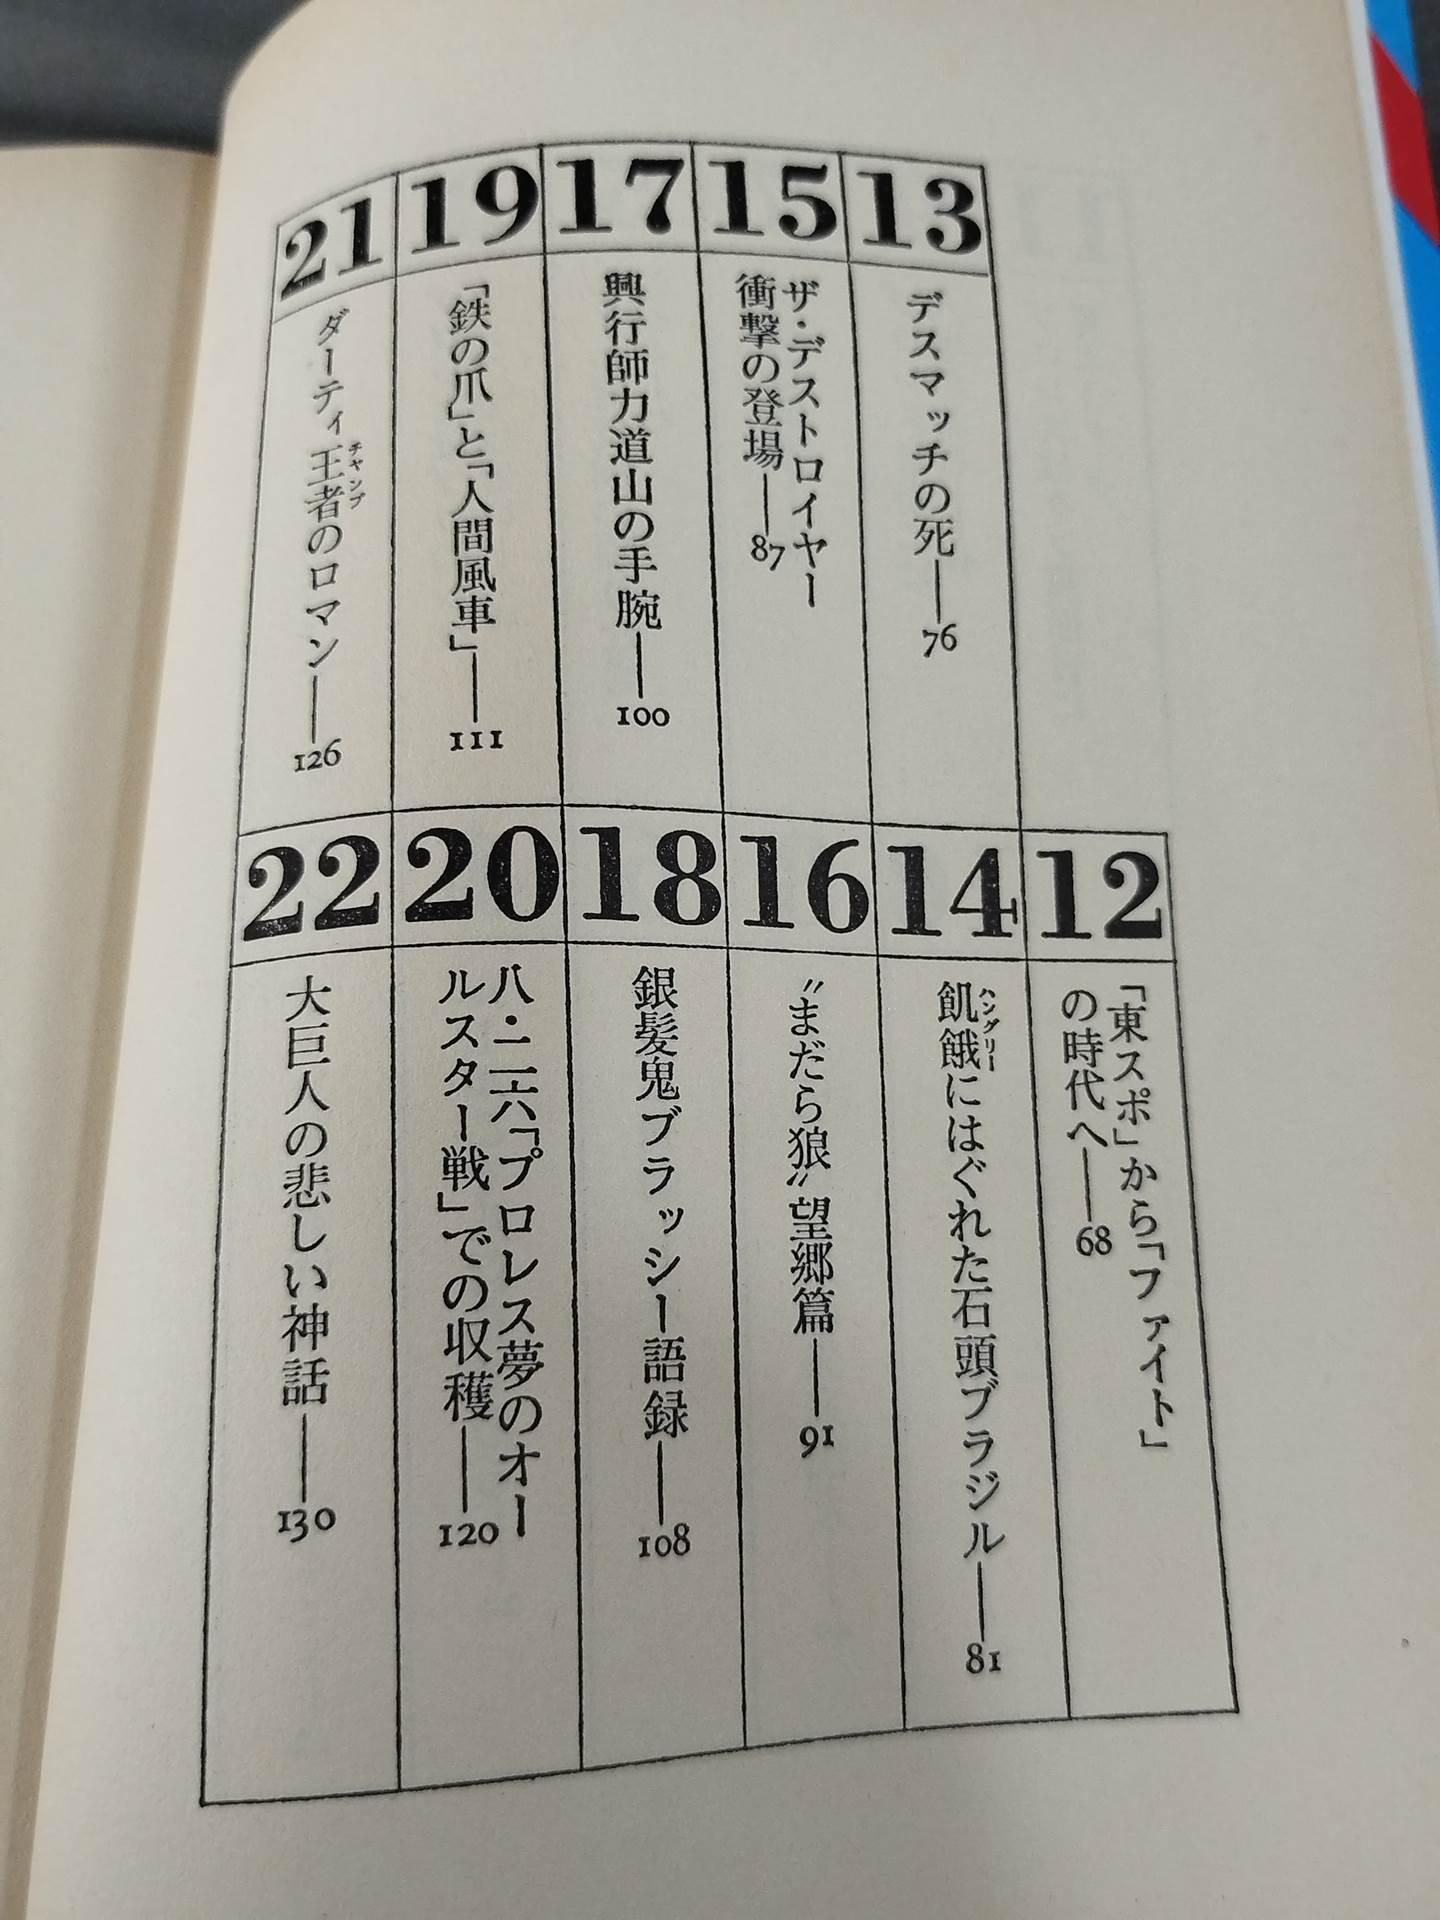 12
「東スポ」から「ファイト」
の時代へ——68
13
デスマッチの死——76
14
飢餓にはぐれた石頭ブラジル——81
ハングリー
15
ザ・デストロイヤー
衝撃の登場——87
16
〝まだら狼〟望郷篇——91
17
興行師力道山の手腕——100
18
銀髪鬼ブラッシー語録——108
19
「鉄の爪」と「人間風車」——111
20
八・二六「プロレス夢のオー
ルスター戦」での収穫——120
21
ダーティ王者のロマン——126
チャンプ
22
大巨人の悲しい神話——130